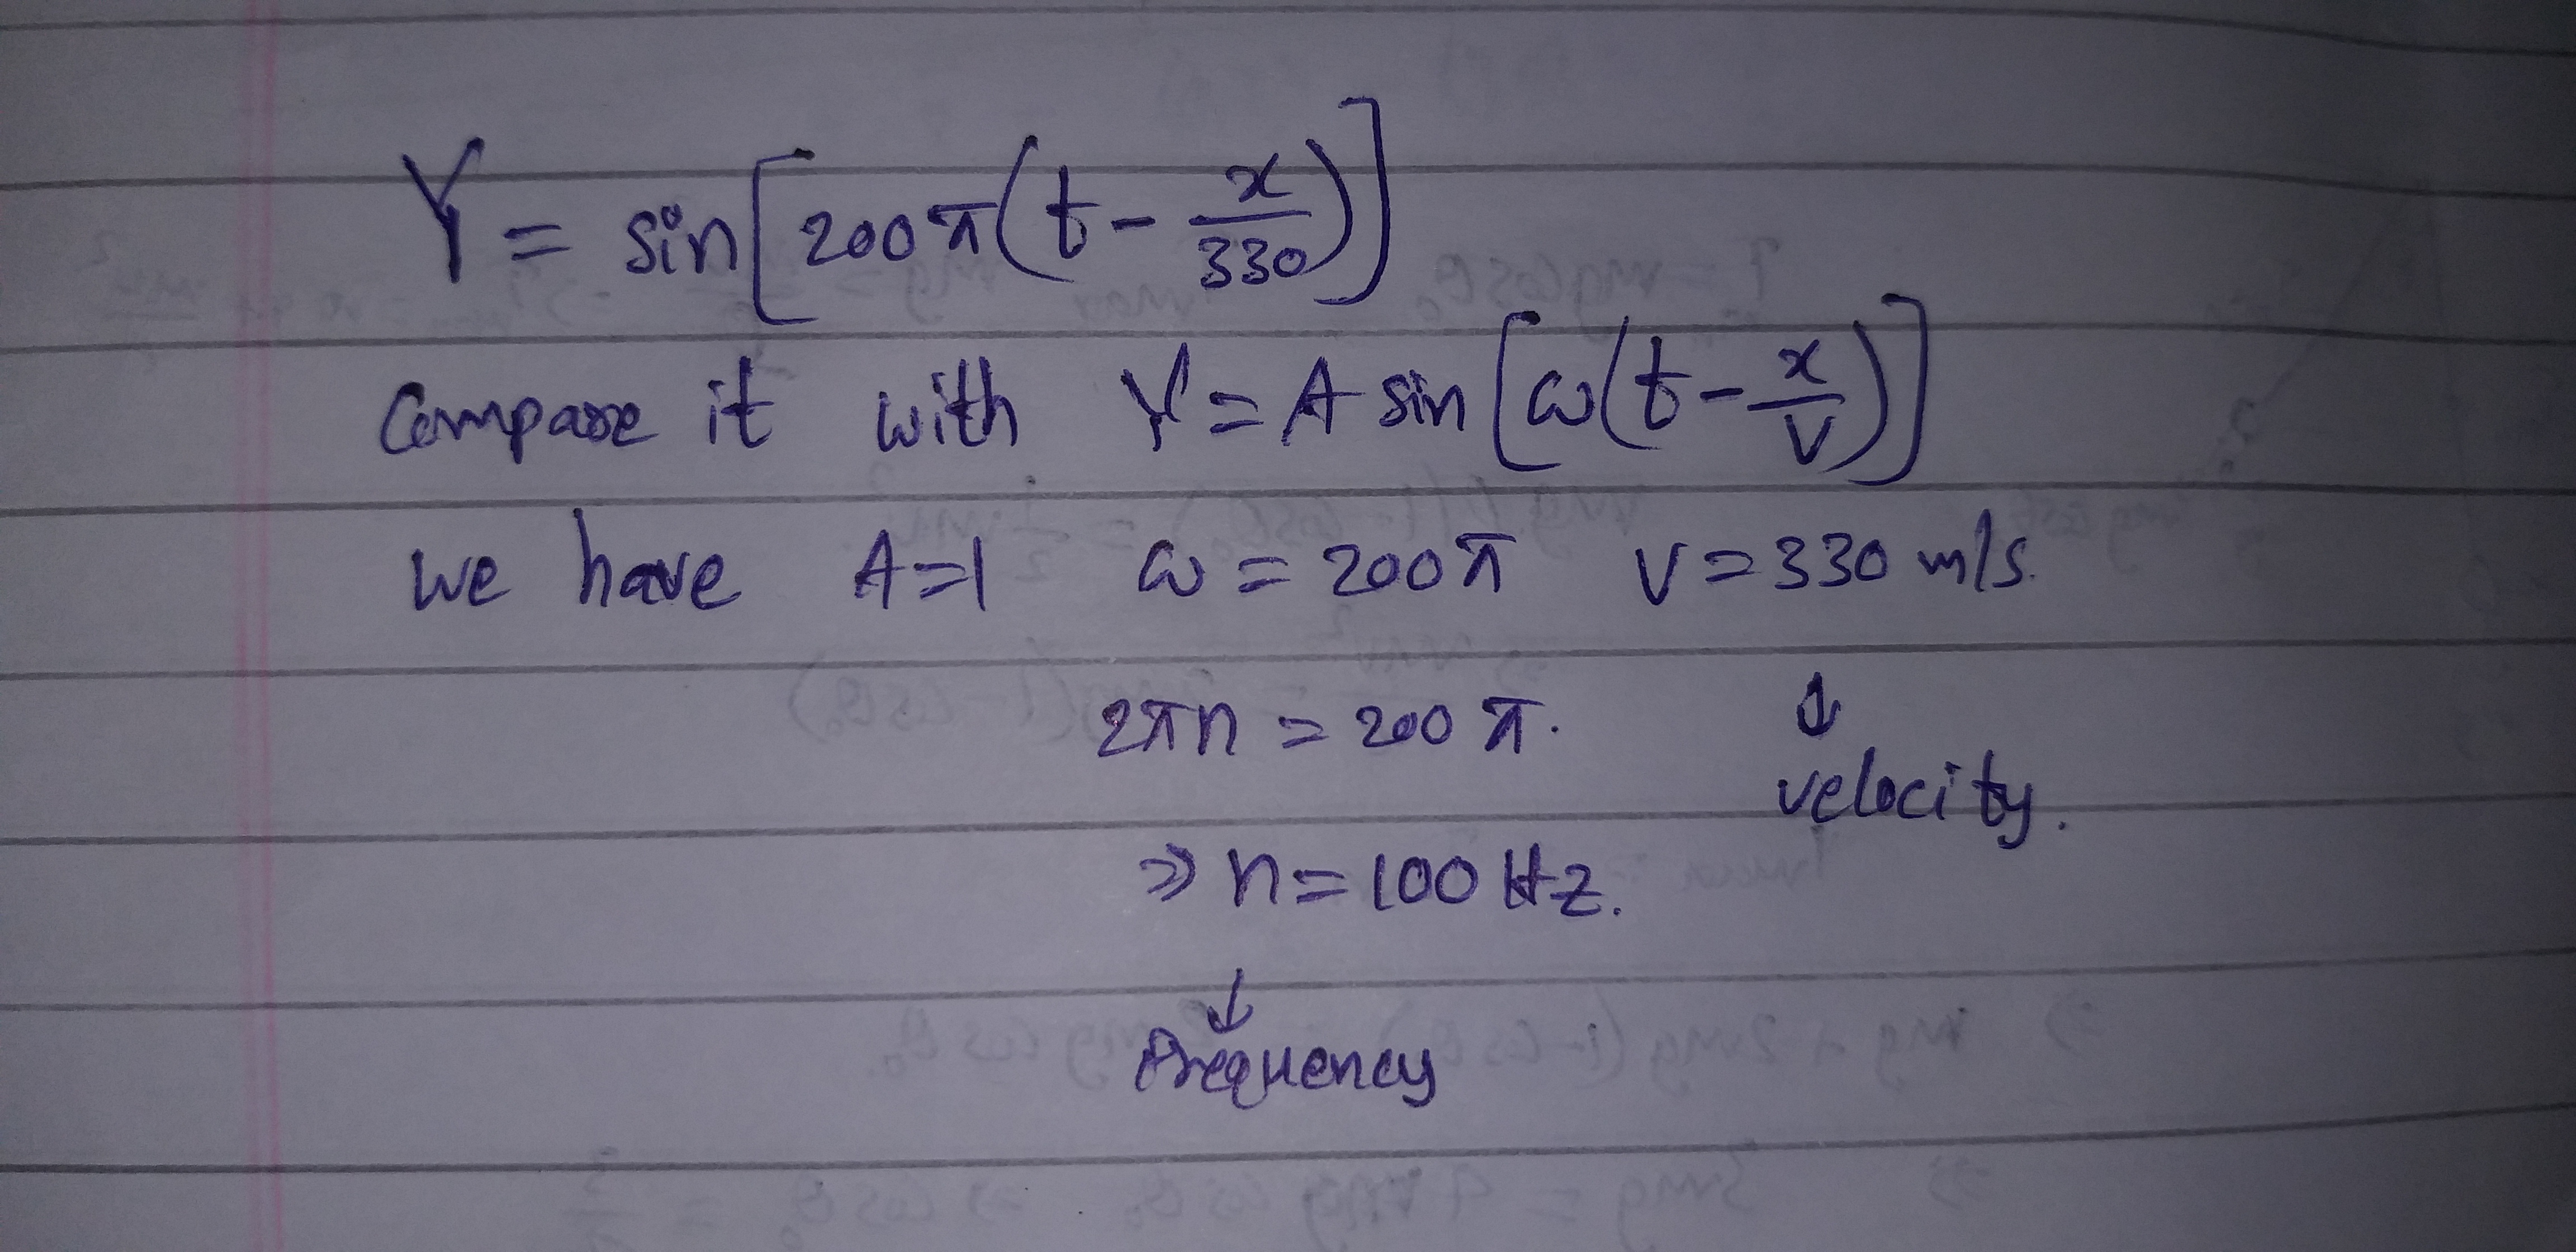 Y = sin[200π(t - x/330)]
Compare it with Y = A sin[ω(t - x/v)]
we have A=1 ω = 200π v = 330 m/s.
2πn = 200π. ↓
velocity.
⇒ n = 100 Hz.
↓
frequency